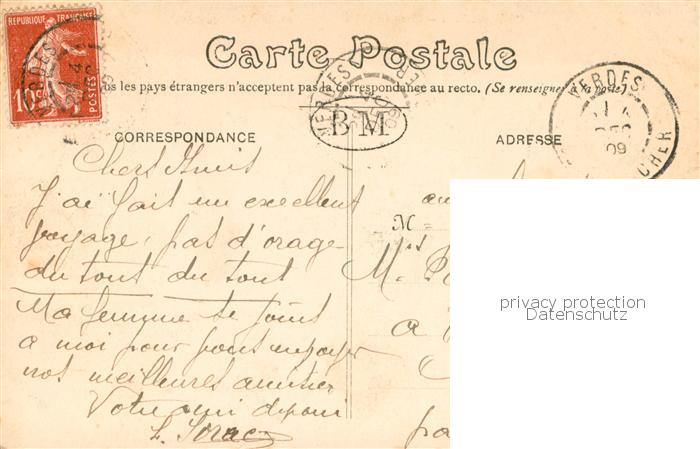 REPUBLIQUE FRANÇAISE
10c POSTES
Carte Postale
les pays étrangers n'acceptent pas la correspondance au recto. (Se renseigner à la poste)
VERDES
VERDES
VERDES
CHER
09
B M
CORRESPONDANCE
ADRESSE
Chers Amis
J'ai fait un excellent
voyage, pas d'orage
du tout du tout
Ma femme se joint
a moi pour vous envoyer
nos meilleures amitiés
Votre ami
au
M
M.
a
pa
privacy protection
Datenschutz